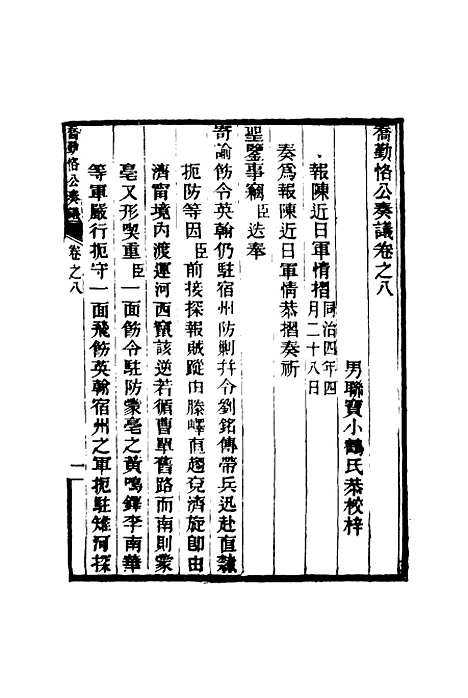 喬勤恪公奏議卷之八
男聯寶小鶴氏恭校梓
報陳近日軍情摺同治四年四
月二十八日
奏爲報陳近日軍情恭摺奏祈
聖鑒事竊臣迭奉
寄諭飭令英翰仍駐宿州防剿幷令劉銘傳帶兵迅赴直隸
扼防等因臣前接探報賊蹤由滕嶧直趨兗濟旋卽由
濟甯境內渡運河西竄該逆若循曹單舊路而南則蒙
亳又形喫重臣一面飭令駐防蒙亳之黃鳴鐸李南華
等軍嚴行扼守一面飛飭英翰宿州之軍扼駐雉河探
喬勤恪公奏議
卷之八
一